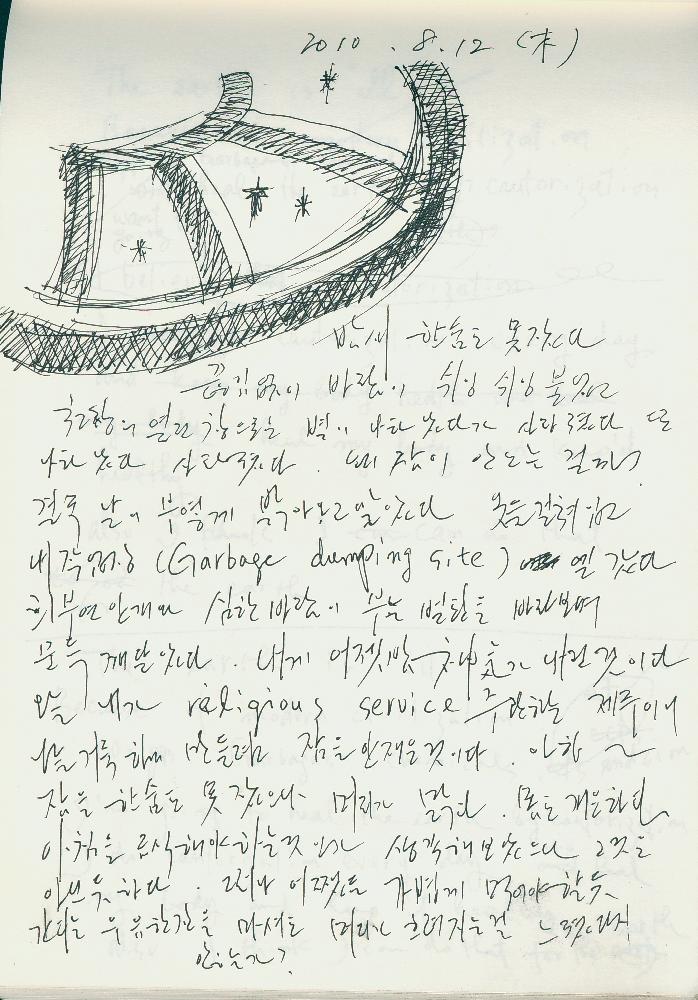 2010 . 8. 12 (木)
밤새 한숨도 못잤다
끊김없이 바람이 쉬잉 쉬잉 불었고
열린 창으로는 별이 나타났다가 사라졌다 또
나타났다 사라졌다 . 왜 잠이 안오는 걸까?
결국 날이 부옇게 밝아오고 말았다 옷을 걸쳐입고
내 작업장 (Garbage dumping site) 엘 갔다
희부연 안개와 심한 바람이 부는 벌판을 바라보며
문득 깨달았다 . 내게 어젯밤 가 내린것이다
오늘 내가 religious service 주관하는 제주이니
날 거룩하게 만들려고 잠을 안재운것이다 . 아함 ~
잠을 한숨도 못 잤으나 머리가 맑다 . 몸도 개운하다
아침을 금식해야하는것인가 생각해보았으나 그것은
아닌듯하다 . 그러나 어쨌든 가볍게 먹어야 할듯,
간다는 우유한잔을 마셔도 머리가 흐려지는걸 느꼈다지
않는가?